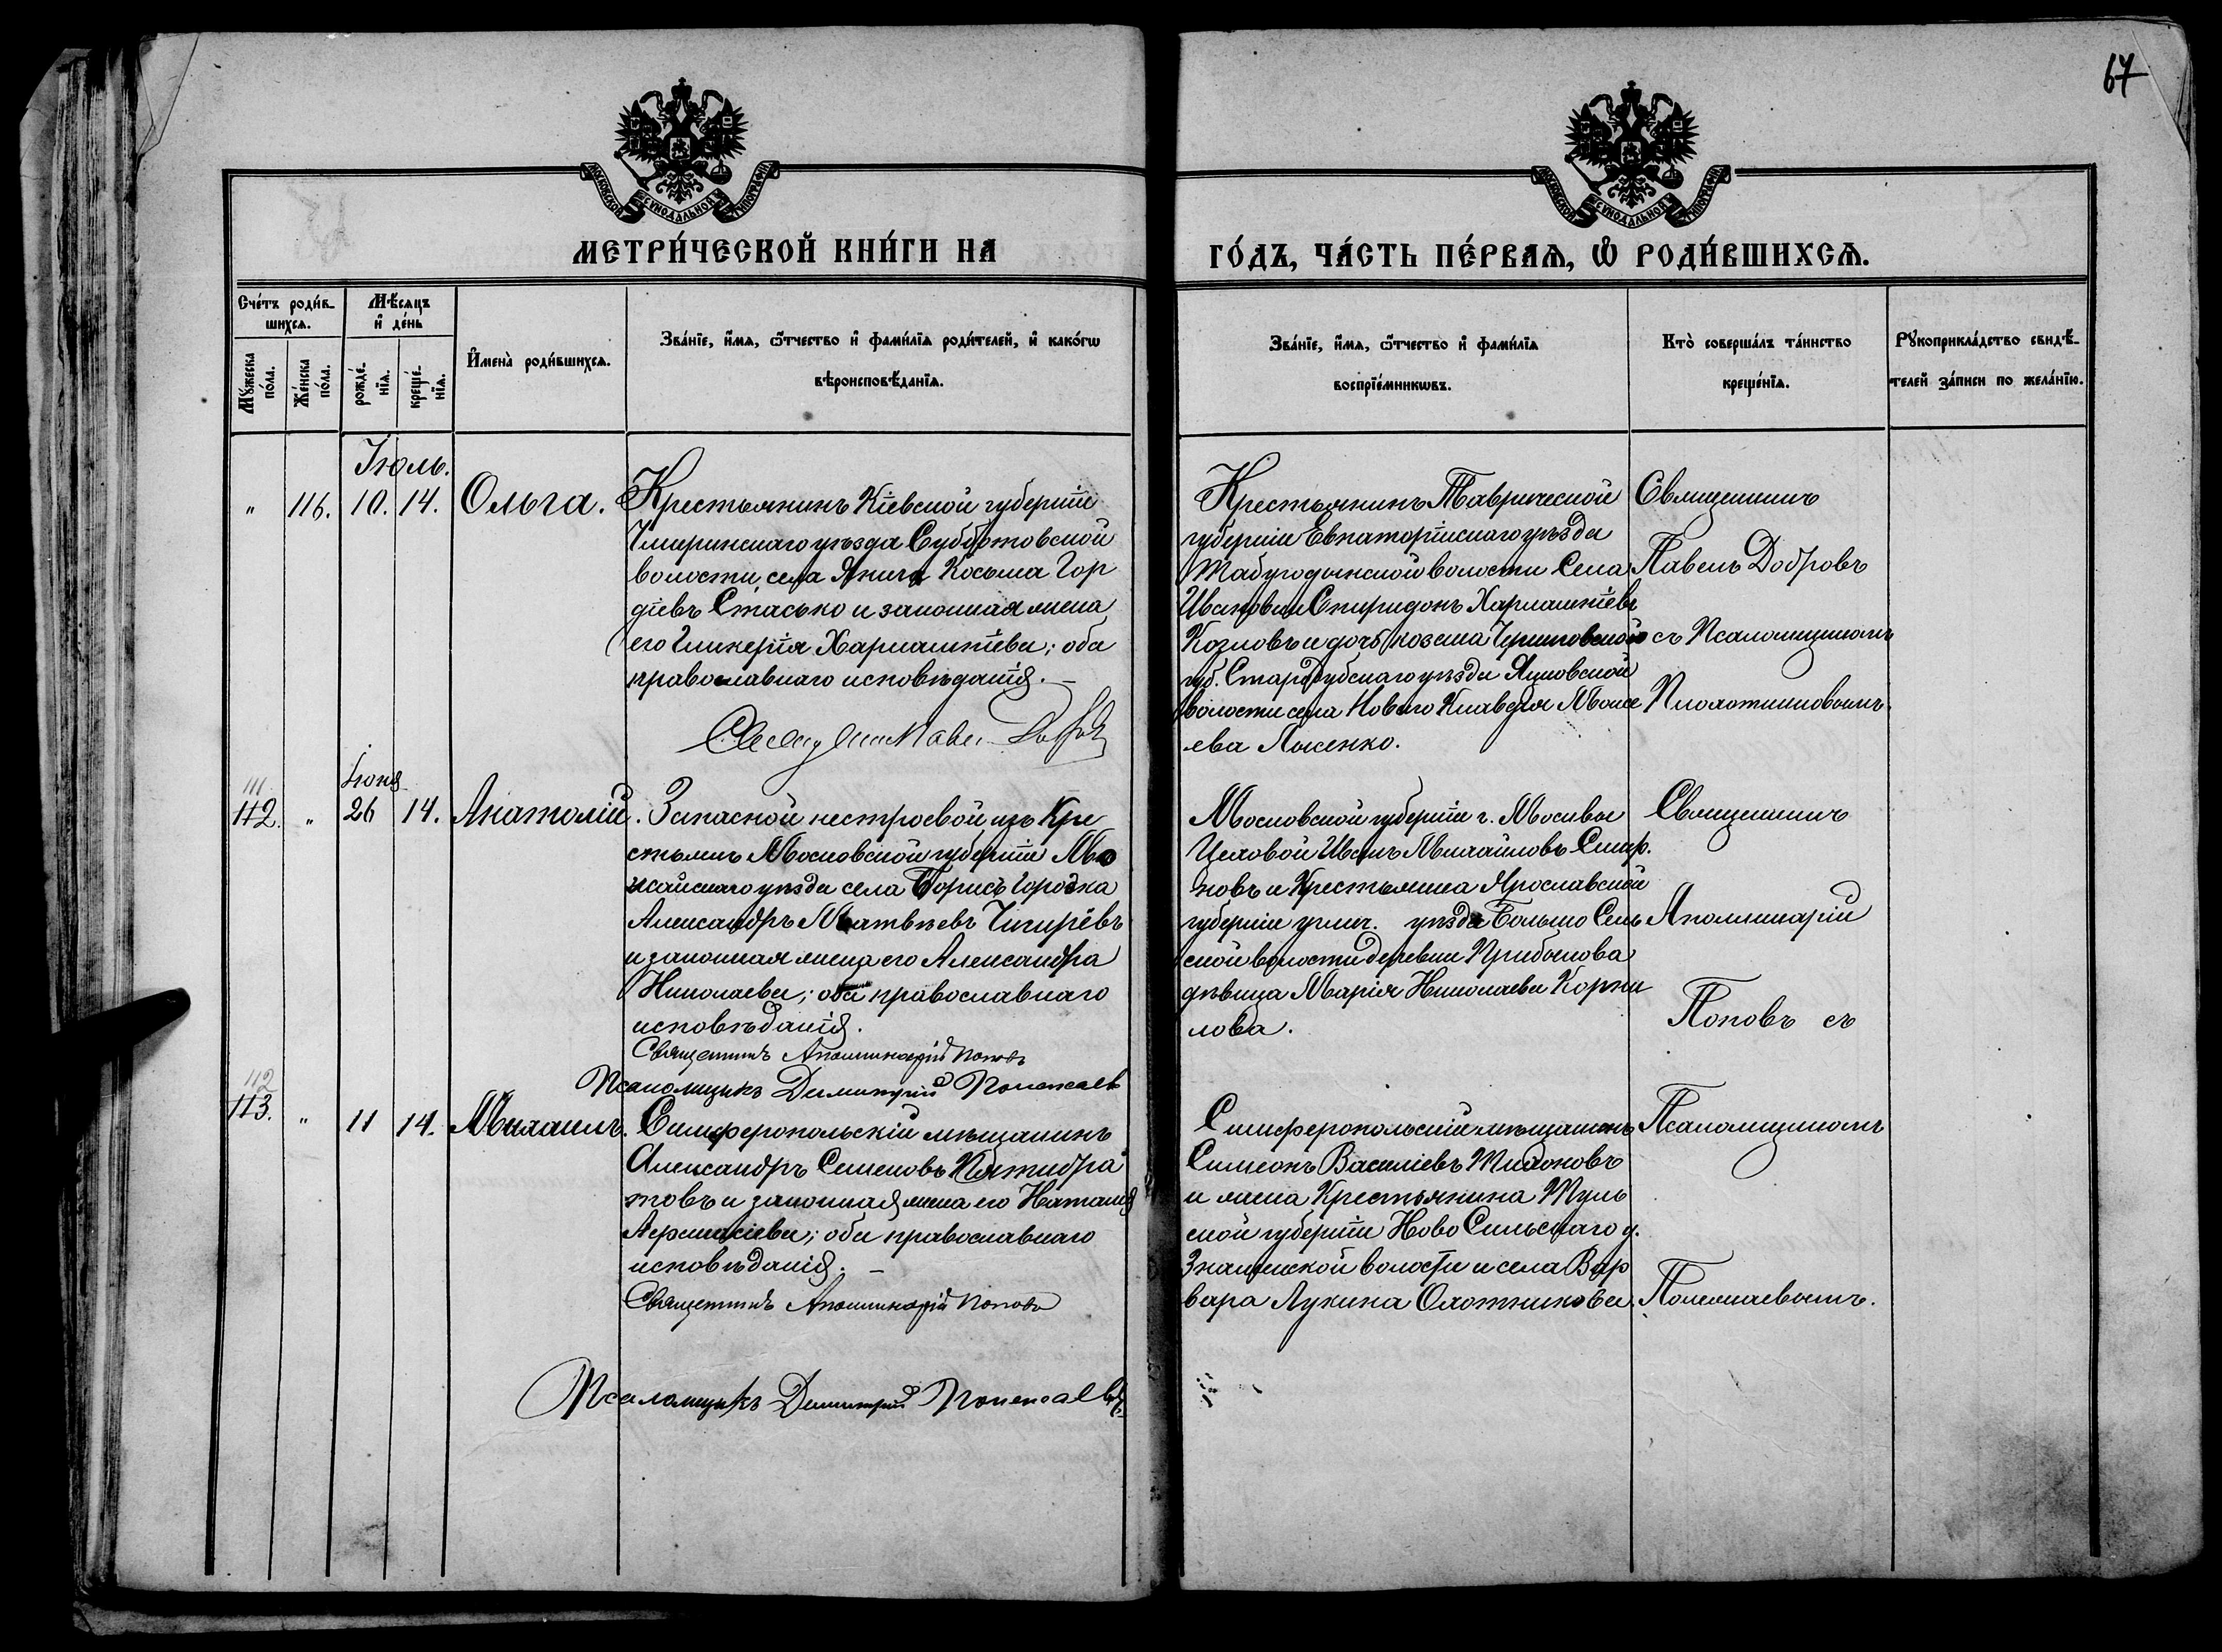 67
МОСКОВСКОЙ СѴНОДАЛЬНОЙ ТИПОГРАФІИ
МОСКОВСКОЙ СѴНОДАЛЬНОЙ ТИПОГРАФІИ
МЕТРИ́ЧЕСКОЙ КНИ́ГИ НА
ГО́ДЪ, ЧА́СТЬ ПЕ́РВАѦ, Ѽ РОДИ́ВШИХСѦ.
Сче́тъ роди́в-
шихсѧ.
Мꙋ́жеска
по́ла.
Же́нска
по́ла.
Мѣ́сѧцъ
и҆ де́нь
рожде́-
нїѧ.
креще́-
нїѧ.
И҆мена̀ роди́вшихсѧ.
Зва́нїе, и҆́мѧ, ѻ҆́тчество и҆ фами́лїѧ роди́телей, и҆ како́гѡ
вѣроисповѣ́данїѧ.
Зва́нїе, и҆́мѧ, ѻ҆́тчество и҆ фами́лїѧ
воспрїе́мникѡвъ.
Кто̀ соверша́лъ та́инство
креще́нїѧ.
Рꙋкоприкла́дство свидѣ́-
телей за́писи по жела́нїю.
Іюль.
" 116. 10. 14. Ольга.
Крестьянинъ Кіевской губерніи
Чигиринскаго уѣзда Субботовской
волости, села Янича Косьма Гор
діевъ Стасько и законная жена
его Гликерія Харлампіева; оба
православнаго исповѣданія. —
Крестьянинъ Таврической
губерніи Евпаторійскаго уѣзда
волости Села
Ивановки Спиридонъ Харлампіевъ
Козловъ и дочь козака Черниговской
губ. Стародубскаго уѣзда Яцковской
волости села Новаго Клавдія Моисе
ева Лысенко.
Священникъ
Павелъ Добровъ
съ Псаломщикомъ
Плохотниковымъ.
Іюня
111
112. " 26 14. Анатолій.
Запасной нестроевой изъ Кре
стьянъ Московской губерніи Мо
жайскаго уѣзда села Борисъ Городка
Александръ Матвѣевъ Чигирёвъ
и законная жена его Александра
Николаева; оба православнаго
исповѣданія.
Священникъ Аполлинарій Поповъ
Псаломщикъ Димитрій Полежаевъ
Московской губерніи г. Москвы
Цеховой Иванъ Михайловъ Смир.
новъ и Крестьянка Ярославской
губерніи углич. уѣзда Большо Сель
ской волости деревни Прибылова
дѣвица Марія Николаева Корни
лова.
Священникъ
Аполлинарій
Поповъ съ
112
113. " 11 14. Михаилъ.
Симферопольскій мѣщанинъ
Александръ Семеновъ
и законная жена его Наталія
оба православнаго
исповѣданія. —
Священникъ Аполлинарій Поповъ
Псаломщикъ Димитрій Полежаевъ
Симферопольскій мѣщанинъ
Симеонъ Василіевъ Тихоновъ
и жена Крестьянина Туль
ской губерніи Ново Сильскаго у.
Знаменской волости и села Вар
вара Лукина Охотникова.
Псаломщикомъ
Полежаевымъ.